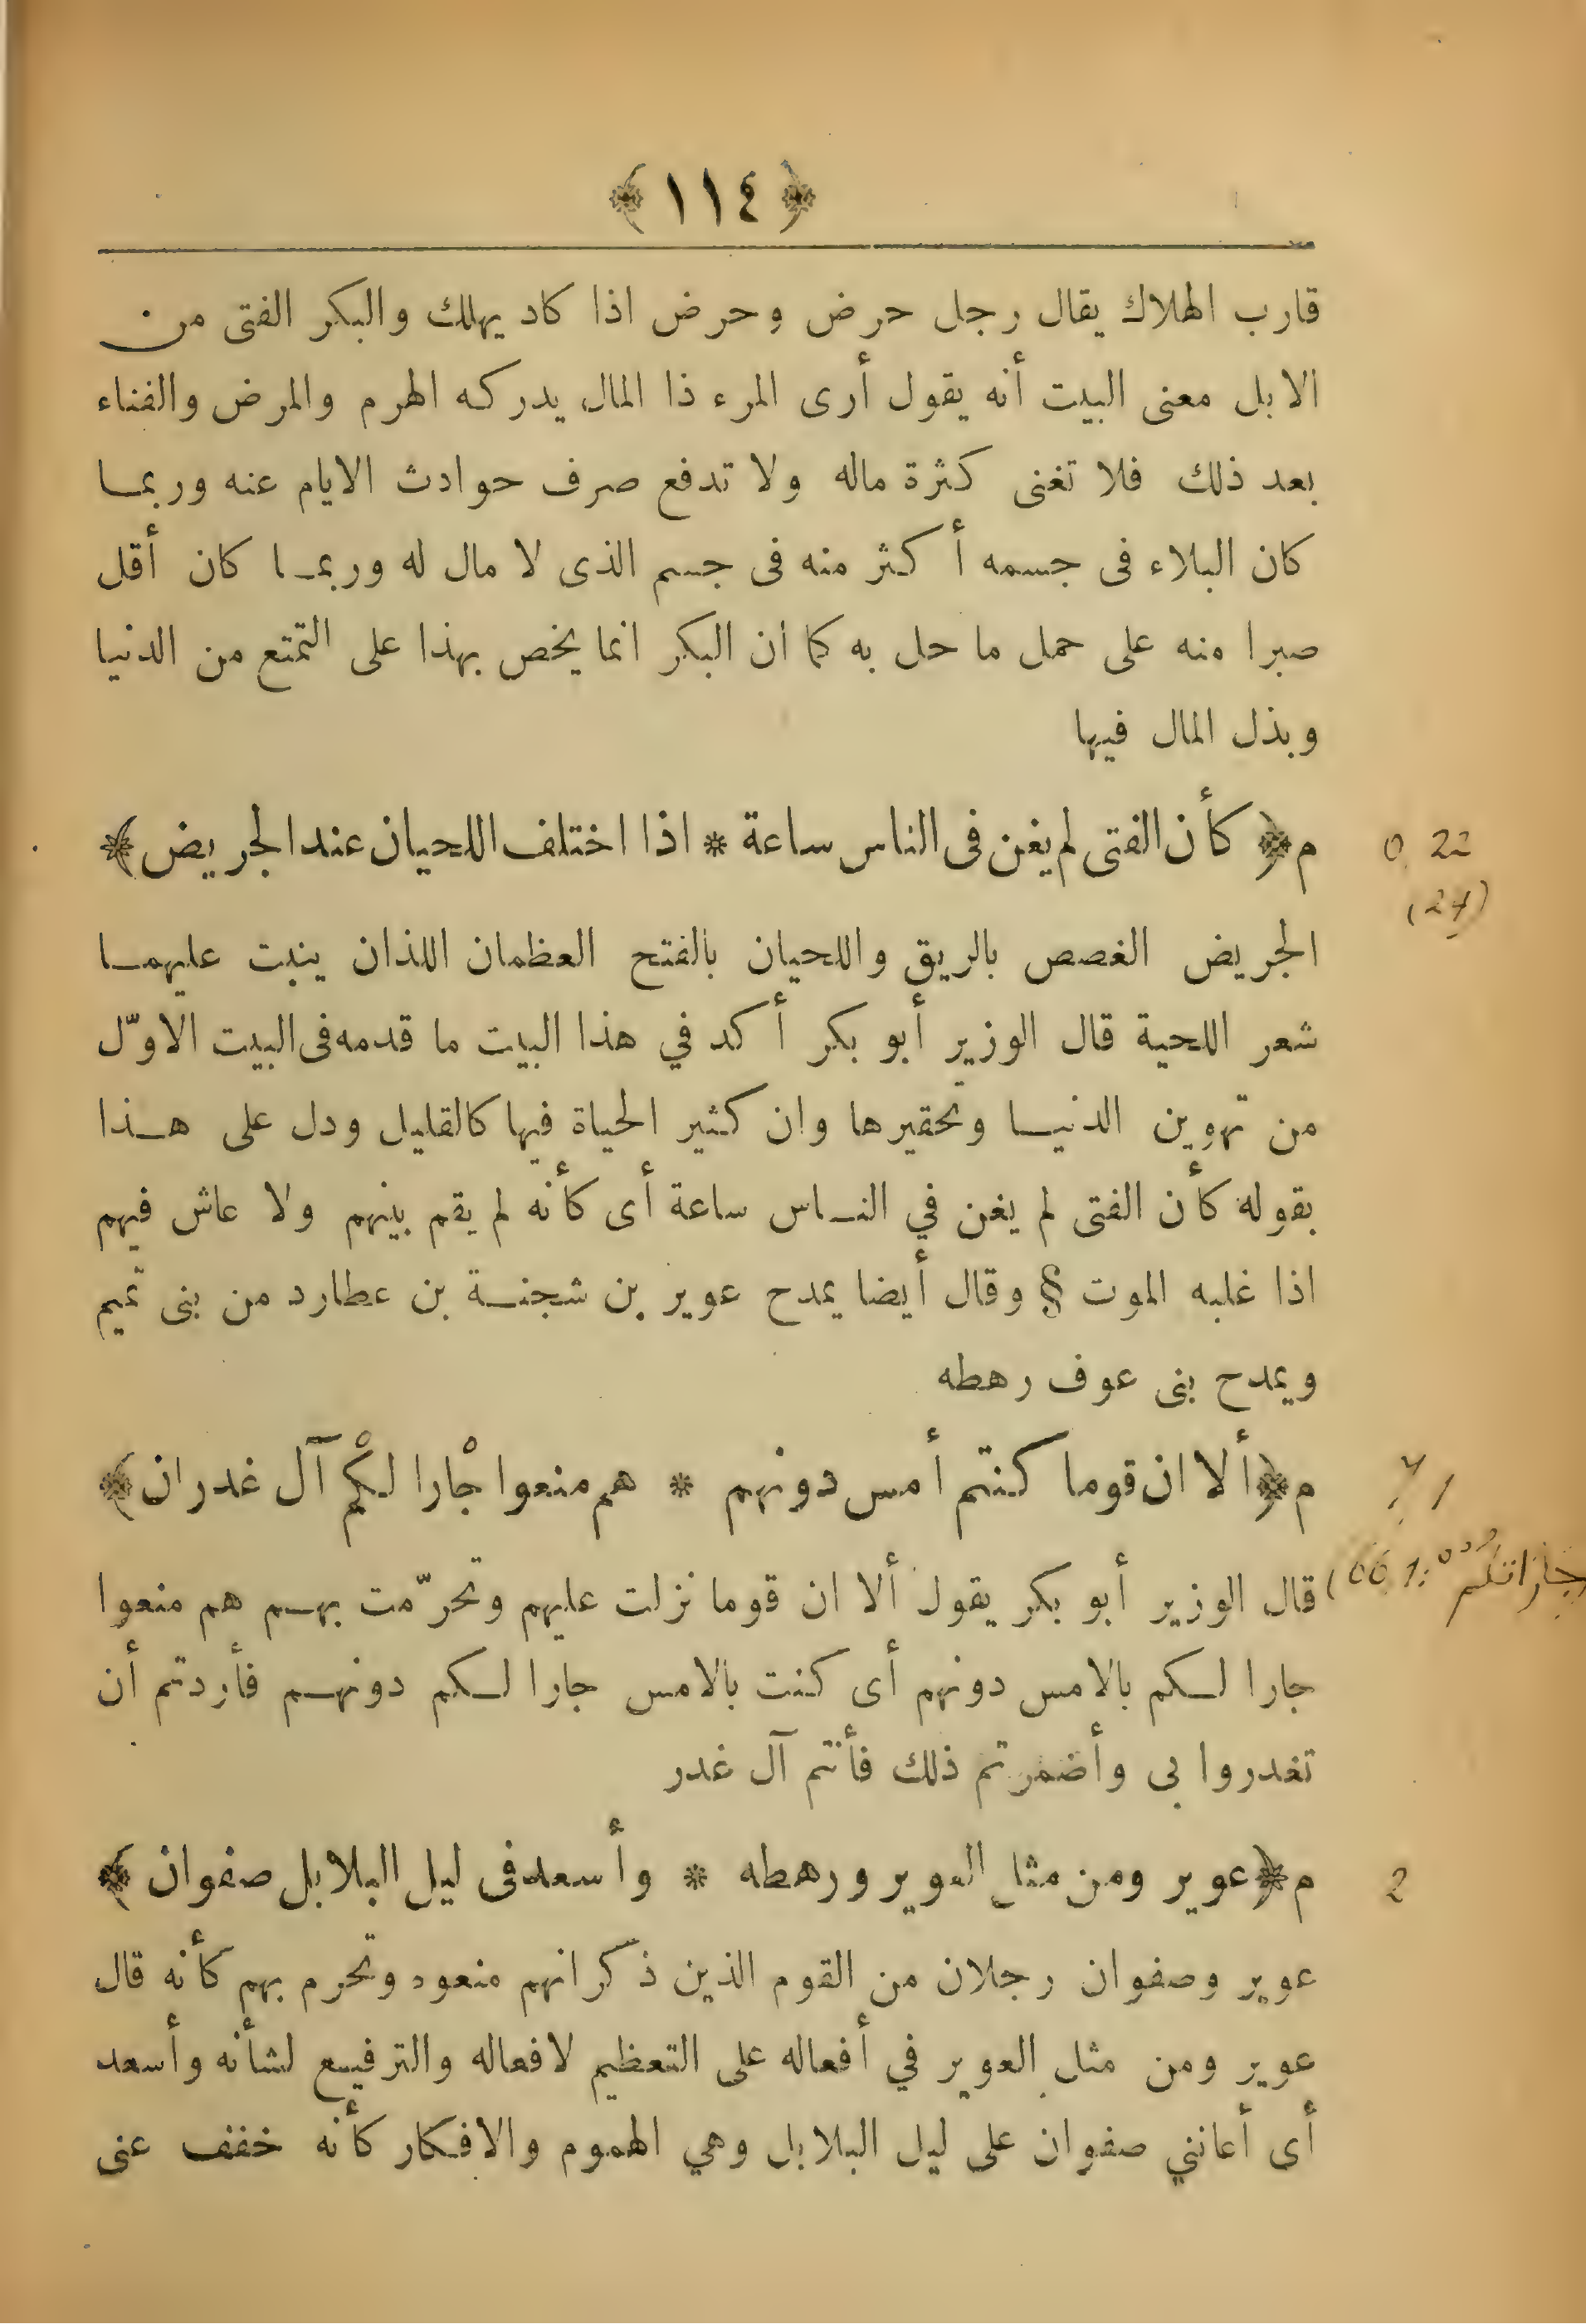 ﴿ ١١٤ ﴾
قارب الهلاك يقال رجل حرض وحرض اذا كاد يهلك والبكر الفتى من
الابل معنى البيت أنه يقول أرى المرء ذا المال يدركه الهرم والمرض والفناء
بعد ذلك فلا تغنى كثرة ماله ولا تدفع صرف حوادث الايام عنه وربمـا
كان البلاء فى جسمه أكثر منه فى جسم الذى لا مال له وربمـا كان أقل
صبرا منه على حمل ما حل به كما ان البكر انما يخص بهذا على التمتع من الدنيا
وبذل المال فيها
م﴿ كأن الفتى لم يغن فى الناس ساعة * اذا اختلف اللحيان عند الجريض ﴾
0 22
(24)
الجريض الغصص بالريق واللحيان بالفتح العظمان اللذان ينبت عليهمـا
شعر اللحية قال الوزير أبو بكر أكد في هذا البيت ما قدمه فى البيت الاوّل
من تهوين الدنيـا وتحقيرها وان كثير الحياة فيها كالقليل ودل على هـذا
بقوله كأن الفتى لم يغن في النـاس ساعة أى كأنه لم يقم بينهم ولا عاش فيهم
اذا غلبه الموت § وقال أيضا يمدح عوير بن شجنـة بن عطارد من بنى تميم
ويمدح بنى عوف رهطه
م﴿ ألا ان قوما كنتم أمس دونهم * هم منعوا جْارا لكمْ آل غدران ﴾
قال الوزير أبو بكر يقول ألا ان قوما نزلت عليهم وتحرّمت بهـم هم منعوا
جارا لـكم بالامس دونهم أى كنت بالامس جارا لـكم دونهـم فأردتم أن
تغدروا بى وأضمرتم ذلك فأنتم آل غدر
م﴿ عوير ومن مثل العوير ورهطه * وأسعد فى ليل البلابل صفوان ﴾
2
عوير وصفوان رجلان من القوم الذين ذكر انهم منعوه وتحرم بهم كأنه قال
عوير ومن مثل العوير في أفعاله على التعظيم لافعاله والترفيـع لشأنه وأسعد
أى أعانني صفوان على ليل البلابل وهي الهموم والافكار كأنه خفف عنى